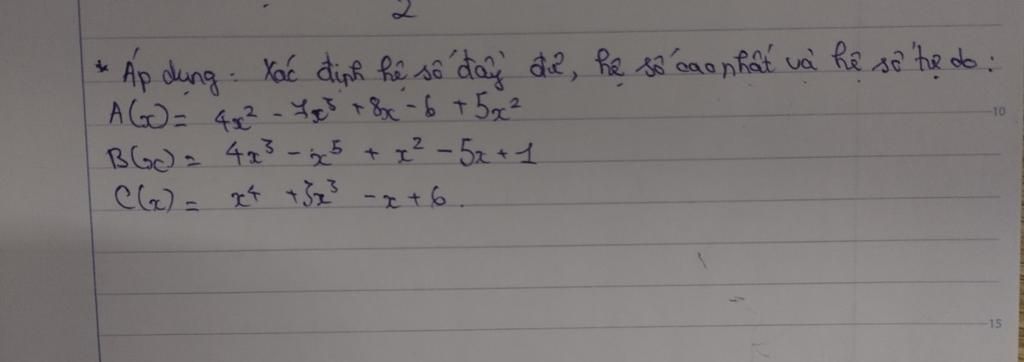 2
* Áp dụng: Xác định hệ số đầy đủ, hệ số cao nhất và hệ số tự do:
A(x) = 4x² - 7x³ + 8x - 6 + 5x²
B(x) = 4x³ - x⁵ + x² - 5x + 1
C(x) = x⁴ + 3x³ - x + 6.
10
15